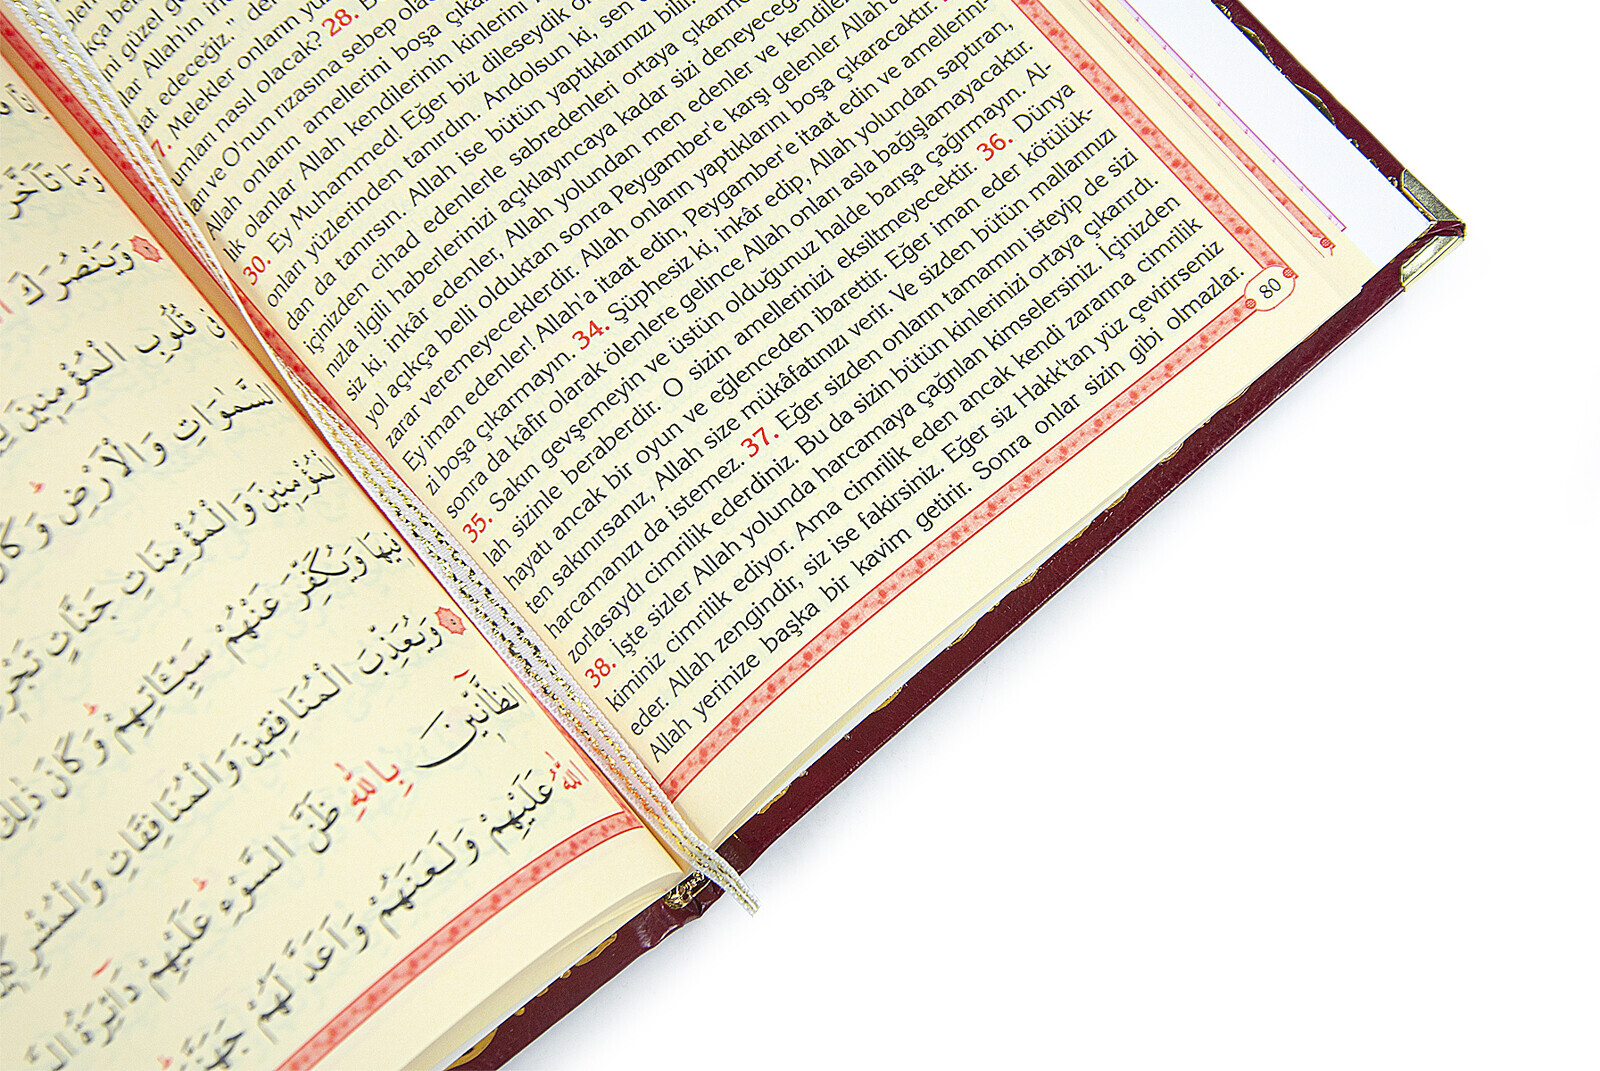 güzel
Allah'ın
edeceğiz."
Melekler onların
nasıl olacak? 28.
ve O'nun rızasına sebep
Allah onların amellerini boşa
lık olanlar Allah kendilerinin kinlerini
30. Ey Muhammed! Eğer biz dileseydik
onları yüzlerinden tanırdın. Andolsun ki, sen
dan da tanırsın. Allah ise bütün yaptıklarınızı bilir.
içinizden cihad edenlerle sabredenleri ortaya
nızla ilgili haberlerinizi açıklayıncaya kadar sizi
siz ki, inkâr edenler, Allah yolundan men edenler ve
yol açıkça belli olduktan sonra Peygamber'e karşı gelenler Allah'a
zarar veremeyeceklerdir. Allah onların yaptıklarını boşa çıkaracaktır.
Ey iman edenler! Allah'a itaat edin, Peygamber'e itaat edin ve amellerini-
zi boşa çıkarmayın. 34. Şüphesiz ki, inkâr edip, Allah yolundan saptıran,
sonra da kâfir olarak ölenlere gelince Allah onları asla bağışlamayacaktır.
35. Sakın gevşemeyin ve üstün olduğunuz halde barışa çağırmayın. Al-
lah sizinle beraberdir. O sizin amellerinizi eksiltmeyecektir. 36. Dünya
hayatı ancak bir oyun ve eğlenceden ibarettir. Eğer iman eder kötülük-
ten sakınırsanız, Allah size mükâfatınızı verir. Ve sizden bütün mallarınızı
harcamanızı da istemez. 37. Eğer sizden onların tamamını isteyip de sizi
zorlasaydı cimrilik ederdiniz. Bu da sizin bütün kinlerinizi ortaya çıkarırdı.
38. İşte sizler Allah yolunda harcamaya çağrılan kimselersiniz. İçinizden
kiminiz cimrilik ediyor. Ama cimrilik eden ancak kendi zararına cimrilik
eder. Allah zengindir, siz ise fakirsiniz. Eğer siz Hakk'tan yüz çevirirseniz
Allah yerinize başka bir kavim getirir. Sonra onlar sizin gibi olmazlar.
80
وَمَا تَأَخَّرَ
وَيَنْصُرَكَ
قُلُوبِ الْمُؤْمِنِينَ
السَّمٰوَاتِ وَالْاَرْضِ وَكَانَ
الْمُؤْمِنِينَ وَالْمُؤْمِنَاتِ جَنَّاتٍ تَجْرِي
فِيهَا وَيُكَفِّرَ عَنْهُمْ سَيِّـَٔاتِهِمْ وَكَانَ ذٰلِكَ
وَيُعَذِّبَ الْمُنَافِقِينَ وَالْمُنَافِقَاتِ وَالْمُشْرِكِينَ
الظَّٓانِّينَ بِاللّٰهِ ظَنَّ السَّوْءِ عَلَيْهِمْ دَٓائِرَةُ
اللّٰهُ عَلَيْهِمْ وَلَعَنَهُمْ وَاَعَدَّ لَهُمْ جَهَنَّمَ